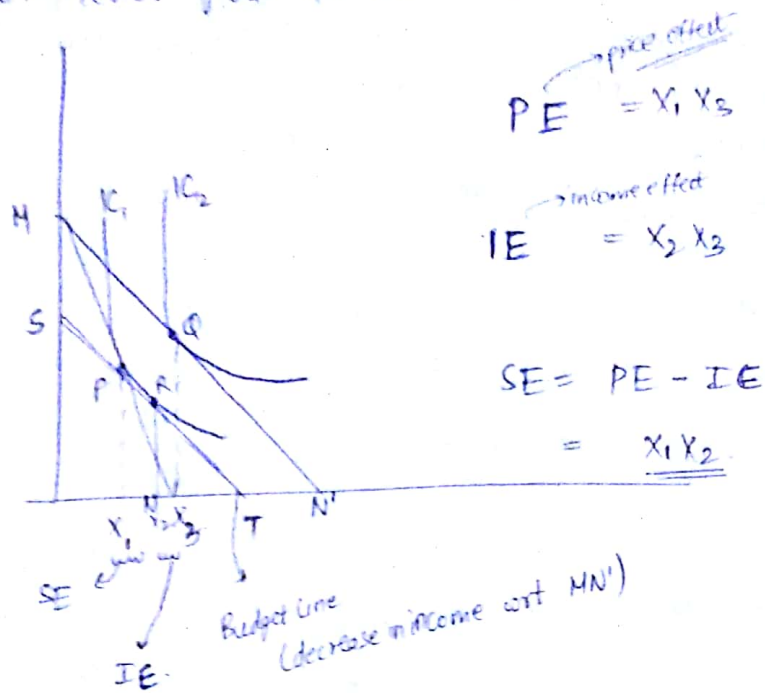 PE → price effect
= X₁ X₃
IE → income effect
= X₂ X₃
SE = PE - IE
= X₁ X₂
M
IC₁
IC₂
S
Q
P
R
X₁
N
X₂
X₃
T
N'
SE
IE.
Budget Line
(decrease in income wrt MN')